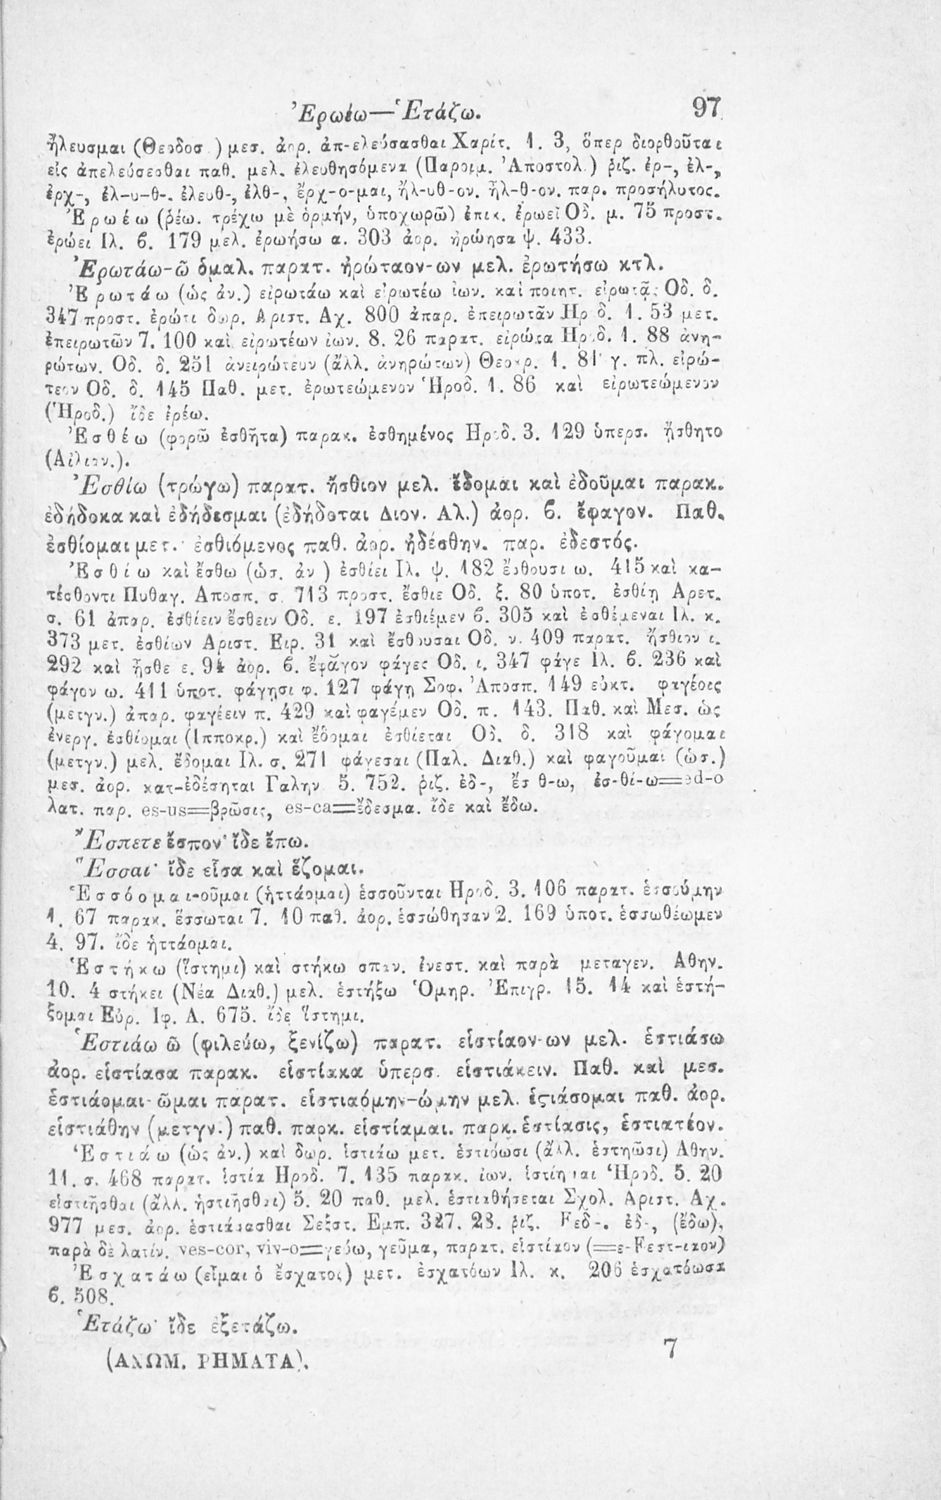 Ἐρωέω—Ἑτάζω. 97
ἤλευσμαι (Θεοδοσ.) μεσ. ἀορ. ἀπ-ελεύσασθαι Χαρίτ. 1. 3, ὅπερ διορθοῦται
εἰς ἀπελεύσεσθαι παθ. μελ. ἐλευθησόμενα (Παροιμ. Ἀποστολ.) ῥιζ. ἐρ-, ἐλ-,
ἐρχ-, ἐλ-υ-θ-. ἐλευθ-, ἐλθ-, ἔρχ-ο-μαι, ἤλ-υθ-ον. ἦλ-θ-ον. παρ. προσήλυτος.
Ἐρωέω (ῥέω. τρέχω μὲ ὁρμήν, ὑποχωρῶ) ἐπικ. ἐρωεῖ Ὀδ. μ. 75 προστ.
ἐρώει Ιλ. β. 179 μελ. ἐρωήσω α. 303 ἀορ. ἠρώησα ψ. 433.
Ἐρωτάω-ῶ ὁμαλ. παρατ. ἠρώταον-ων μελ. ἐρωτήσω κτλ.
Ἐρωτάω (ὡς ἀν.) εἰρωτάω καὶ εἰρωτέω ἰων. καὶ ποιητ. εἰρωτᾷς Ὀδ. δ.
347 προστ. ἐρώτι δωρ. Ἀριστ. Αχ. 800 ἀπαρ. ἐπειρωτᾶν Ἡρ δ. 1. 53 μετ.
ἐπειρωτῶν 7. 100 καὶ εἰρωτέων ἰων. 8. 26 παρατ. εἰρώτα Ηροδ. 1. 88 ἀνη-
ρώτων. Ὀδ. δ. 251 ἀνειρώτευν (ἄλλ. ἀνηρώτων) Θεοκρ. 1. 81 γ. πλ. εἰρώ-
τεον Ὀδ. δ. 145 Παθ. μετ. ἐρωτεώμενον Ἡροδ. 1. 86 καὶ εἰρωτεώμενον
(Ἡροδ.) ἴδε ἐρέω.
Ἐσθέω (φορῶ ἐσθῆτα) παρακ. ἐσθημένος Ηροδ. 3. 129 ὑπερσ. ἤσθητο
(Αἰλιαν.).
Ἐσθίω (τρώγω) παρατ. ἤσθιον μελ. ἔδομαι καὶ ἐδοῦμαι παρακ.
ἐδήδοκα καὶ ἐδήδεσμαι (ἐδήδοται Διον. Αλ.) ἀορ. β. ἔφαγον. Παθ.
ἐσθίομαι μετ. ἐσθιόμενος παθ. ἀορ. ἠδέσθην. παρ. ἐδεστός.
Ἐσθίω καὶ ἔσθω (ὡσ. ἀν) ἐσθίει Ιλ. ψ. 182 ἔσθουσι ω. 415 καὶ κα-
τέσθοντι Πυθαγ. Αποσπ. σ. 713 προστ. ἔσθιε Ὀδ. ξ. 80 ὑποτ. ἐσθίῃ Αρετ.
σ. 61 ἀπαρ. ἐσθίειν ἔσθειν Ὀδ. ε. 197 ἐσθιέμεν β. 305 καὶ ἐσθέμεναι Ιλ. κ.
373 μετ. ἐσθίων Αριστ. Ειρ. 31 καὶ ἔσθουσαι Ὀδ. ν. 409 παρατ. ἤσθιον ι.
292 καὶ ἦσθε ε. 94 ἀορ. β. ἔφαγον φάγες Ὀδ. ι. 347 φάγε Ιλ. β. 236 καὶ
φάγον ω. 411 ὑποτ. φάγῃσι φ. 127 φάγῃ Σοφ. Ἀποσπ. 149 εὐκτ. φαγέοις
(μετγν.) ἀπαρ. φαγέειν π. 429 καὶ φαγέμεν Ὀδ. π. 143. Παθ. καὶ Μεσ. ὡς
ἐνεργ. ἐσθίομαι (Ιπποκρ.) καὶ ἔδομαι ἐσθίεται Ὀδ. δ. 318 καὶ φάγομαι
(μετγν.) μελ. ἔδομαι Ιλ. σ. 271 φάγεσαι (Παλ. Διαθ.) καὶ φαγοῦμαι (ὡσ.)
μεσ. ἀορ. κατ-εδέσηται Γαλην 5. 752. ῥιζ. ἐδ-, ἔσ θ-ω, ἐσ-θί-ω=ed-o
λατ. παρ. es-us=βρῶσις, es-ca=ἔδεσμα. ἴδε καὶ ἔδω.
Ἔσπετε ἔσπον· ἴδε ἔπω.
Ἕσσαι· ἴδε εἷσα καὶ ἕζομαι.
Ἑσσόομαι-οῦμαι (ἡττάομαι) ἑσσοῦνται Ηροδ. 3. 106 παρατ. ἑσσούμην
1. 67 παρακ. ἕσσωται 7. 10 παθ. ἀορ. ἑσσώθησαν 2. 169 ὑποτ. ἑσσωθέωμεν
4. 97. ἴδε ἡττάομαι.
Ἑστήκω (ἵστημι) καὶ στήκω σπαν. ἐνεστ. καὶ παρὰ μεταγεν. Αθην.
10. 4 στήκει (Νέα Διαθ.) μελ. ἑστήξω Ὁμηρ. Ἐπιγρ. 15. 14 καὶ ἑστή-
ξομαι Εὐρ. Ιφ. Α. 675. ἴδε ἵστημι.
Ἑστιάω ῶ (φιλεύω, ξενίζω) παρατ. εἱστίαον-ων μελ. ἑστιάσω
ἀορ. εἱστίασα παρακ. εἱστίακα ὑπερσ. εἱστιάκειν. Παθ. καὶ μεσ.
ἑστιάομαι-ῶμαι παρατ. εἱστιαόμην-ώμην μελ. ἑστιάσομαι παθ. ἀορ.
εἱστιάθην (μετγν.) παθ. παρκ. εἱστίαμαι. παρκ. ἑστίασις, ἑστιατέον.
Ἑστιάω (ὡς ἀν.) καὶ δωρ. ἱστιάω μετ. ἑστιόωσι (ἄλλ. ἑστηῶσι) Αθην.
11. σ. 468 παρατ. ἱστία Ηροδ. 7. 135 παρακ. ἰων. ἱστίηται Ἡροδ. 5. 20
εἱστιῆσθαι (ἄλλ. ἡστιῆσθαι) 5. 20 παθ. μελ. ἑστιαθήσεται Σχολ. Αριστ. Αχ.
977 μεσ. ἀορ. ἑστιάσασθαι Σεξστ. Εμπ. 327. 28. ῥιζ. Fεδ-. ἑδ-, (ἔδω),
παρὰ δὲ λατίν. ves-cor, viv-o=γεύω, γεῦμα, παρατ. εἱστίαον (=ε-Fεστ-ιαον)
Ἐσχατάω (εἶμαι ὁ ἔσχατος) μετ. ἐσχατόων Ιλ. κ. 206 ἐσχατόωσα
β. 508.
Ἑτάζω· ἴδε ἐξετάζω.
(ΑΝΩΜ. ΡΗΜΑΤΑ). 7